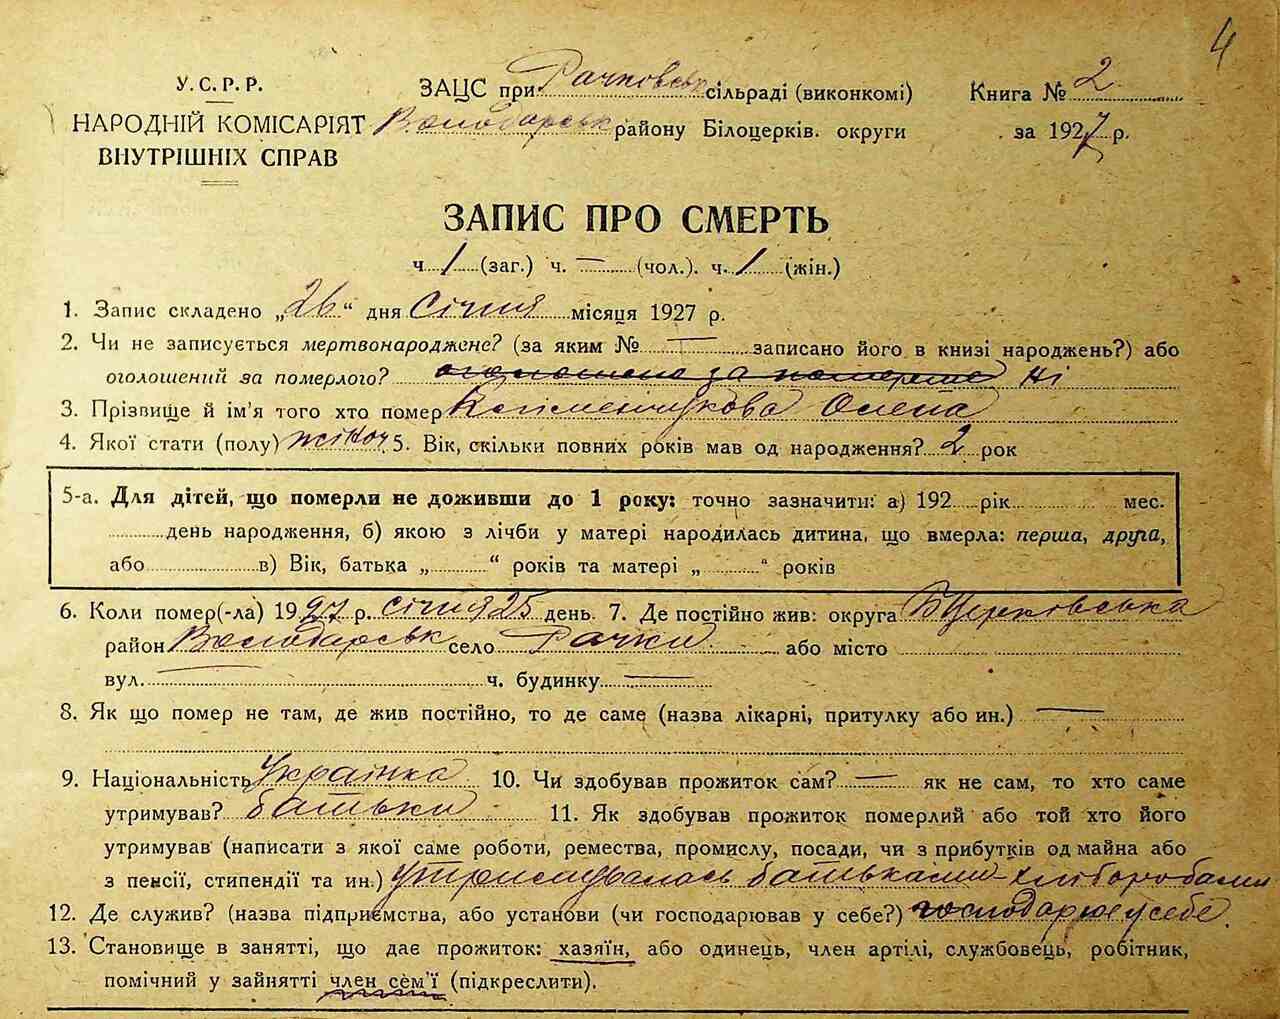 4
У.С.Р.Р.
НАРОДНІЙ КОМІСАРІЯТ
ВНУТРІШНІХ СПРАВ
ЗАЦС при Рачковськ сільраді (виконкомі)
Володарськ району Білоцерків. округи
Книга № 2
за 1927 р.
ЗАПИС ПРО СМЕРТЬ
ч 1 (заг.) ч. — (чол.). ч. 1 (жін.)
1. Запис складено „26“ дня Січня місяця 1927 р.
2. Чи не записується мертвонароджене? (за яким № — записано його в книзі народжень?) або
оголошений за померлого? оголошено за померше Ні
3. Прізвище й ім'я того хто помер Клименчукова Олена
4. Якої стати (полу) жіноч 5. Вік, скільки повних років мав од народження? 2 рок
5-а. Для дітей, що померли не доживши до 1 року: точно зазначити: а) 192 рік мес.
день народження, б) якою з лічби у матері народилась дитина, що вмерла: перша, друга,
або в) Вік, батька „ “ років та матері „ “ років
6. Коли помер(-ла) 1927 р. січня 25 день. 7. Де постійно жив: округа БЦерковська
район Володарськ село Рачки або місто
вул. ч. будинку —
8. Як що помер не там, де жив постійно, то де саме (назва лікарні, притулку або ин.) —
9. Національність Українка 10. Чи здобував прожиток сам? — як не сам, то хто саме
утримував? батьки 11. Як здобував прожиток померлий або той хто його
утримував (написати з якої саме роботи, ремества, промислу, посади, чи з прибутків од майна або
з пенсії, стипендії та ин.) утримувалась батьками-хліборобами
12. Де служив? (назва підприємства, або установи (чи господарював у себе?) господарює у себе
13. Становище в занятті, що дає прожиток: хазяїн, або одинець, член артілі, службовець, робітник,
помічний у зайнятті член сем'ї (підкреслити).